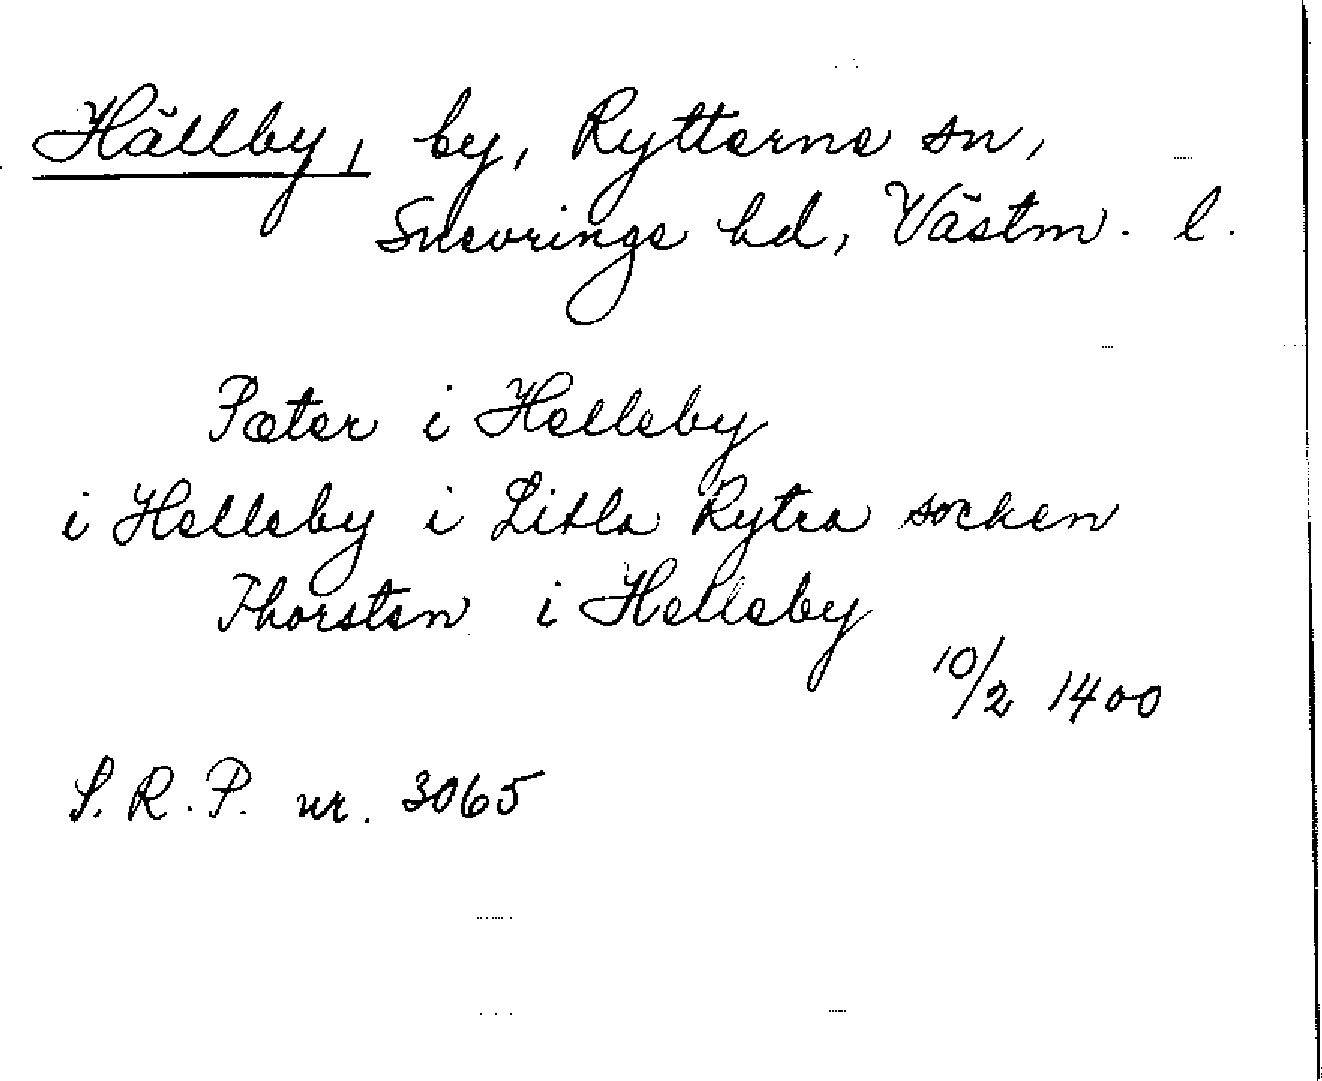 Hällby, by, Ryttarne sn,
Snevringe hd, Västm. l.
Pæter i Helleby
i Helleby i Litla Rytra socken
Thorsten i Helleby
10/2 1400
S.R.P. nr. 3065